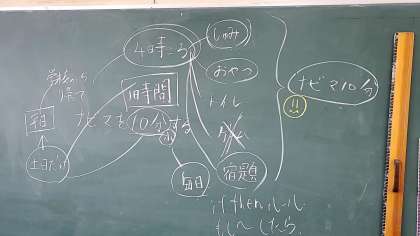 4時ごろ
しゅみ
おやつ
トイレ
宿題
学校から
帰って
1時間
ナビマを10分する
土日だけ
毎日
ナビマ10分
!!
if then ルール
もし〜したら